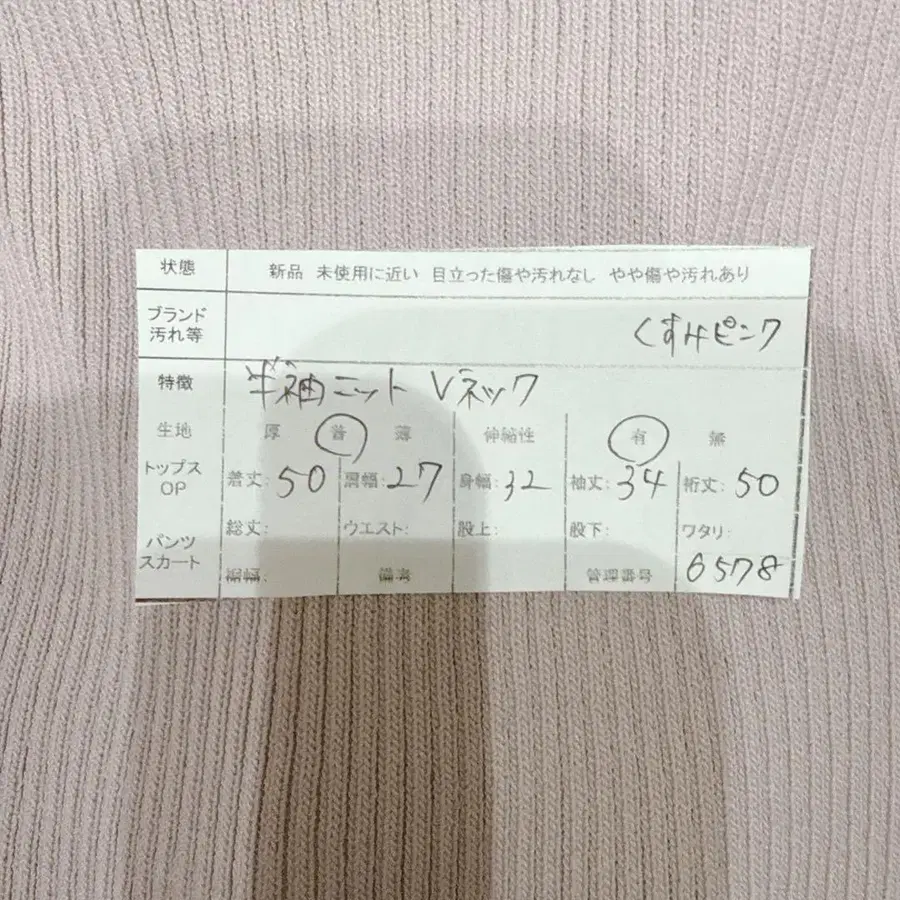 状態 新品 未使用に近い 目立った傷や汚れなし やや傷や汚れあり
ブランド
汚れ等 くすみピンク
特徴 半袖ニット Vネック
生地 厚 普 薄 伸縮性 有 無
トップス
OP 着丈: 50 肩幅: 27 身幅: 32 袖丈: 34 裄丈: 50
パンツ
スカート 総丈: ウエスト: 股上: 股下: ワタリ:
裾幅: 備考 管理番号 6578